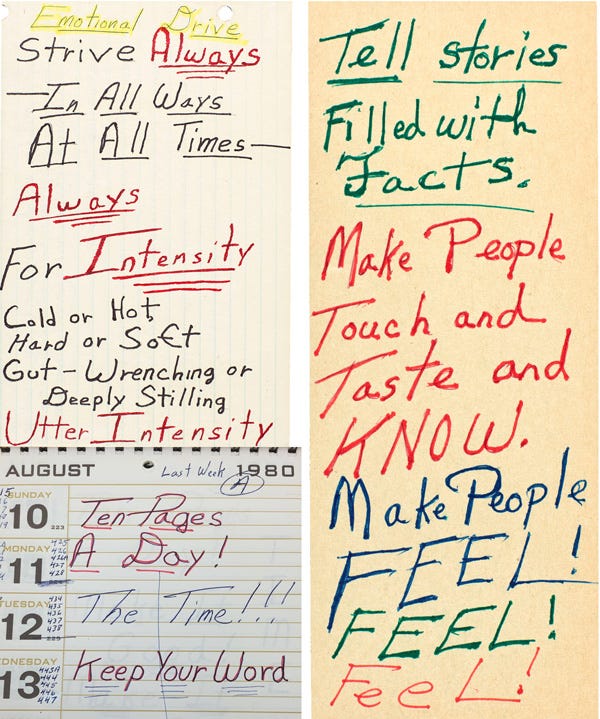 Emotional Drive
Strive Always
— In All Ways
At All Times —
Always
For Intensity
Cold or Hot,
Hard or Soft
Gut-Wrenching or
Deeply Stilling
Utter Intensity
AUGUST Last Week 1980
A
SUNDAY
10 223
Ten-Pages
MONDAY
11
A Day!
425
426
426A
427
428
TUESDAY
12 225
The Time!!!
434
435
436
437
438
WEDNESDAY
13
Keep Your Word
443A
444
445
446
447
Tell stories
Filled with
Facts.
Make People
Touch and
Taste and
KNOW.
Make People
FEEL!
FEEL!
FeeL!